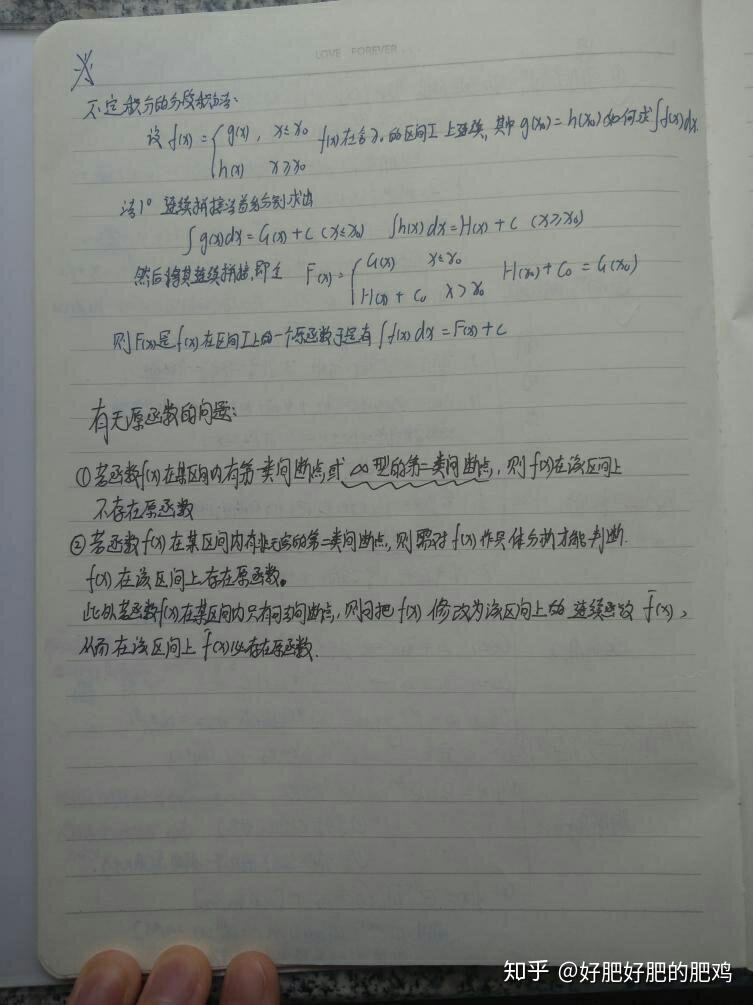 LOVE FOREVER...
不定积分的分段积分法:
设 f(x) = { g(x), x≤x₀
h(x) x≥x₀
f(x)在含x₀的区间I上连续,其中g(x₀)=h(x₀)如何求∫f(x)dx.
法1° 连续拼接法首先分别求出
∫g(x)dx=G(x)+C (x≤x₀) ∫h(x)dx=H(x)+C (x≥x₀)
然后将其连续拼接,即令 F(x)= { G(x) x≤x₀
H(x)+C₀ x>x₀
H(x₀)+C₀=G(x₀)
则F(x)是f(x)在区间I上的一个原函数于是有∫f(x)dx=F(x)+C
有无原函数的问题:
①若函数f(x)在某区间内有第一类间断点或∞型的第二类间断点,则f(x)在该区间上
不存在原函数
②若函数f(x)在某区间内有非无穷的第二类间断点,则需对f(x)作具体分析才能判断.
f(x)在该区间上存在原函数。
此外若函数f(x)在某区间内只有可去间断点,则可把f(x)修改为该区间上的连续函数f̃(x),
从而在该区间上f̃(x)必存在原函数.
知乎 @好肥好肥的肥鸡